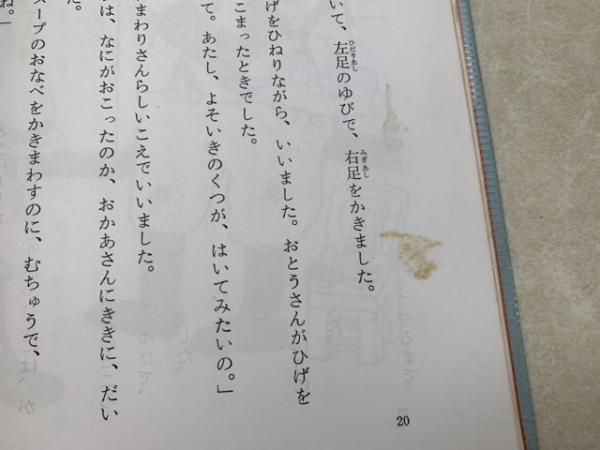 いて、左足のゆびで、右足をかきました。
げをひねりながら、いいました。おとうさんがひげを
こまったときでした。
て。あたし、よそいきのくつが、はいてみたいの。」
まわりさんらしいこえでいいました。
は、なにがおこったのか、おかあさんにききに、だい
た。
スープのおなべをかきまわすのに、むちゅうで、
ね。」
20